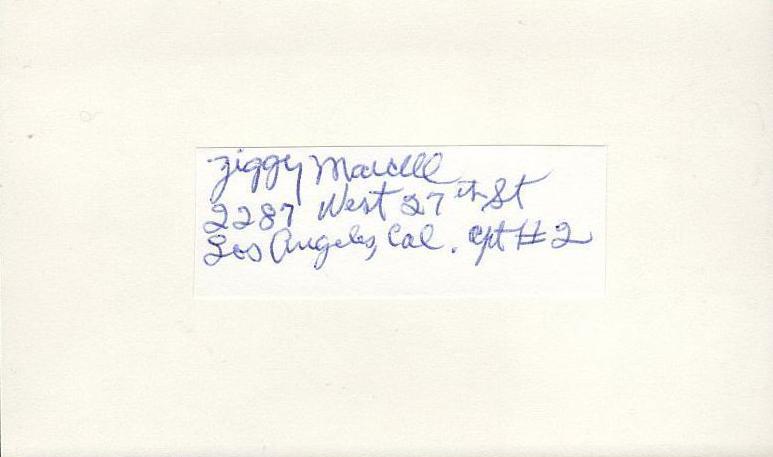 Ziggy Marcell
2287 West 27th St
Los Angeles, Cal. Apt #2